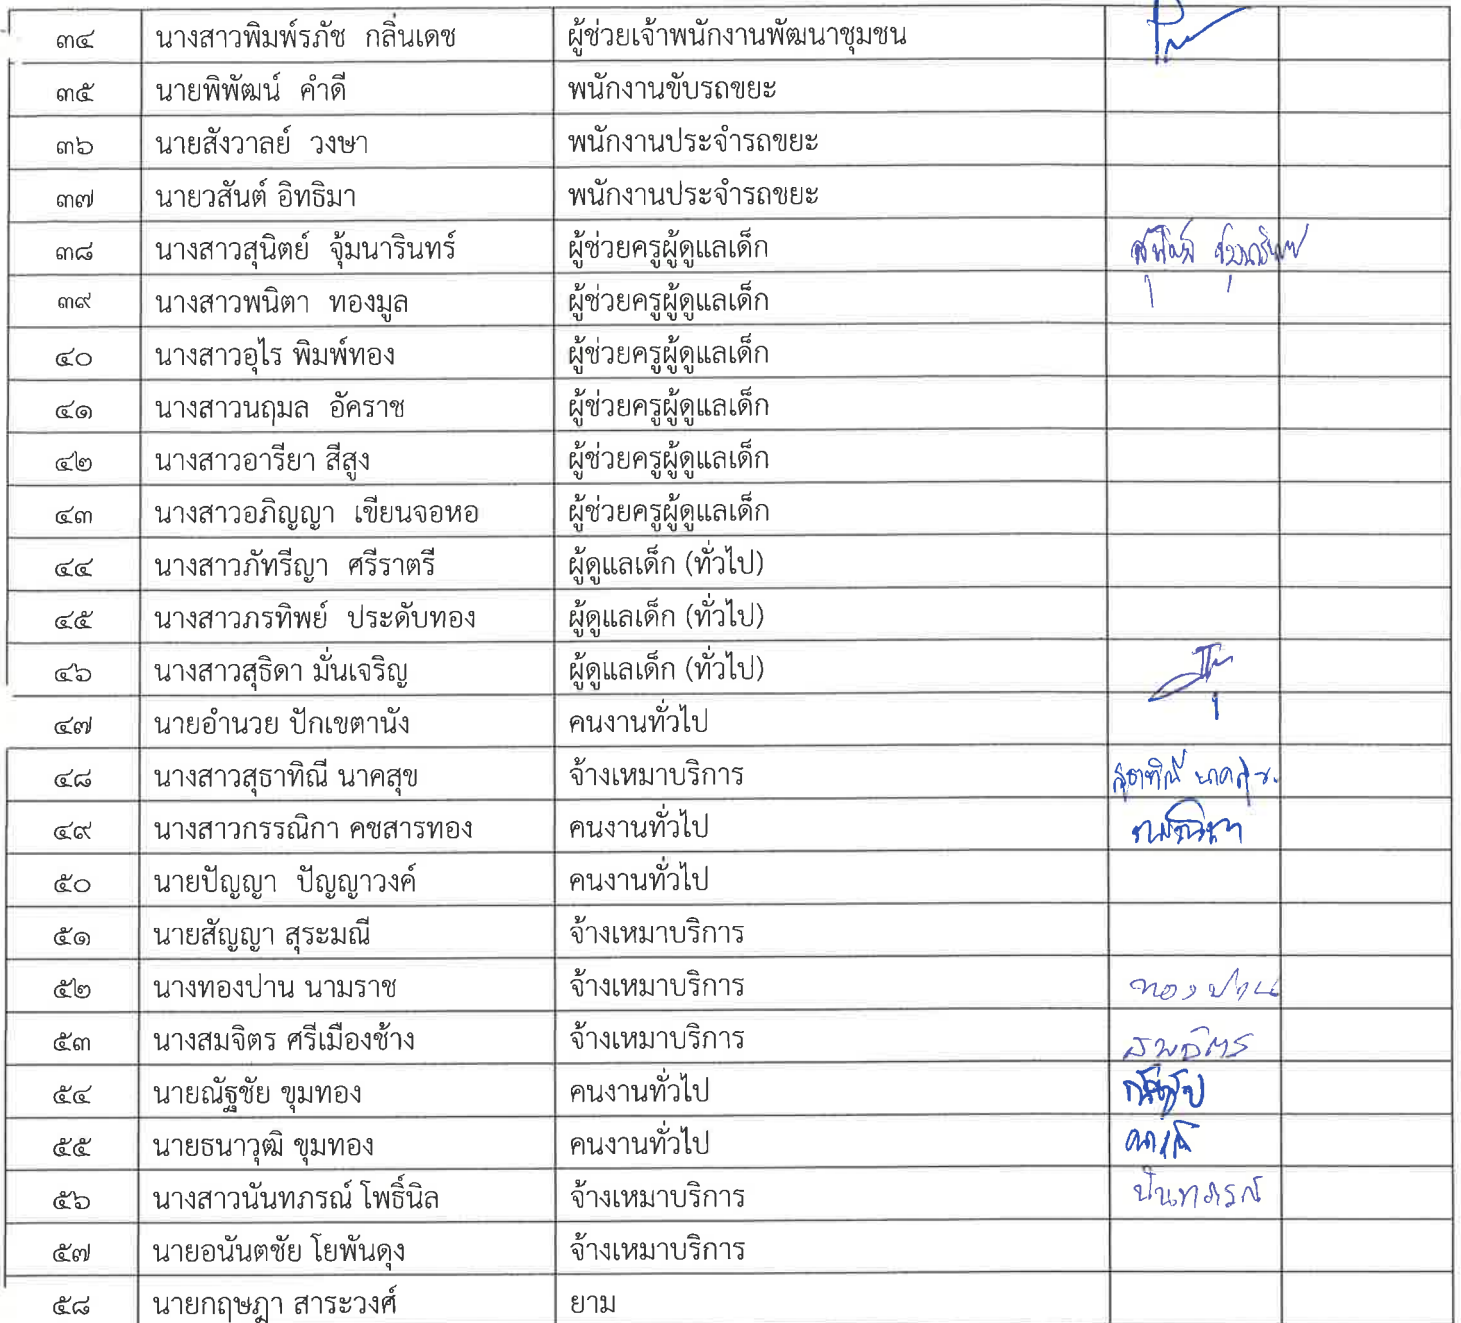 ๓๔ นางสาวพิมพ์รภัช กลิ่นเดช ผู้ช่วยเจ้าพนักงานพัฒนาชุมชน
๓๕ นายพิพัฒน์ คำดี พนักงานขับรถขยะ
๓๖ นายสังวาลย์ วงษา พนักงานประจำรถขยะ
๓๗ นายวสันต์ อิทธิมา พนักงานประจำรถขยะ
๓๘ นางสาวสุนิตย์ จุ้มนารินทร์ ผู้ช่วยครูผู้ดูแลเด็ก
๓๙ นางสาวพนิตา ทองมูล ผู้ช่วยครูผู้ดูแลเด็ก
๔๐ นางสาวอุไร พิมพ์ทอง ผู้ช่วยครูผู้ดูแลเด็ก
๔๑ นางสาวนฤมล อัคราช ผู้ช่วยครูผู้ดูแลเด็ก
๔๒ นางสาวอารียา สีสูง ผู้ช่วยครูผู้ดูแลเด็ก
๔๓ นางสาวอภิญญา เขียนจอหอ ผู้ช่วยครูผู้ดูแลเด็ก
๔๔ นางสาวภัทรีญา ศรีราตรี ผู้ดูแลเด็ก (ทั่วไป)
๔๕ นางสาวภรทิพย์ ประดับทอง ผู้ดูแลเด็ก (ทั่วไป)
๔๖ นางสาวสุธิดา มั่นเจริญ ผู้ดูแลเด็ก (ทั่วไป)
๔๗ นายอำนวย ปักเขตานัง คนงานทั่วไป
๔๘ นางสาวสุธาทิณี นาคสุข จ้างเหมาบริการ สุธาทิณี นาคสุข.
๔๙ นางสาวกรรณิกา คชสารทอง คนงานทั่วไป กรรณิกา
๕๐ นายปัญญา ปัญญาวงค์ คนงานทั่วไป
๕๑ นายสัญญา สุระมณี จ้างเหมาบริการ
๕๒ นางทองปาน นามราช จ้างเหมาบริการ ทองปาน
๕๓ นางสมจิตร ศรีเมืองช้าง จ้างเหมาบริการ สมจิตร
๕๔ นายณัฐชัย ขุมทอง คนงานทั่วไป
๕๕ นายธนาวุฒิ ขุมทอง คนงานทั่วไป
๕๖ นางสาวนันทภรณ์ โพธิ์นิล จ้างเหมาบริการ นันทภรณ์
๕๗ นายอนันตชัย โยพันดุง จ้างเหมาบริการ
๕๘ นายกฤษฎา สาระวงศ์ ยาม